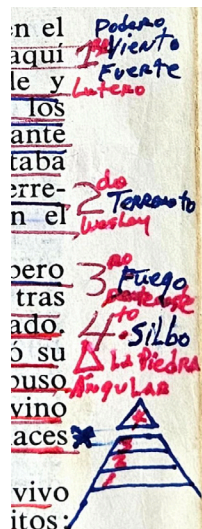 n el
aquí
le y
los
ante
taba
erre-
n el
pero
tras
ado.
ó su
puso
vino
aces
vivo
itos:
Podero
1 Viento
Fuerte
Lutero
2do Terremoto
Wesley
3ro Fuego
4to Silbo
Δ La Piedra
Angular
4
3
2
1